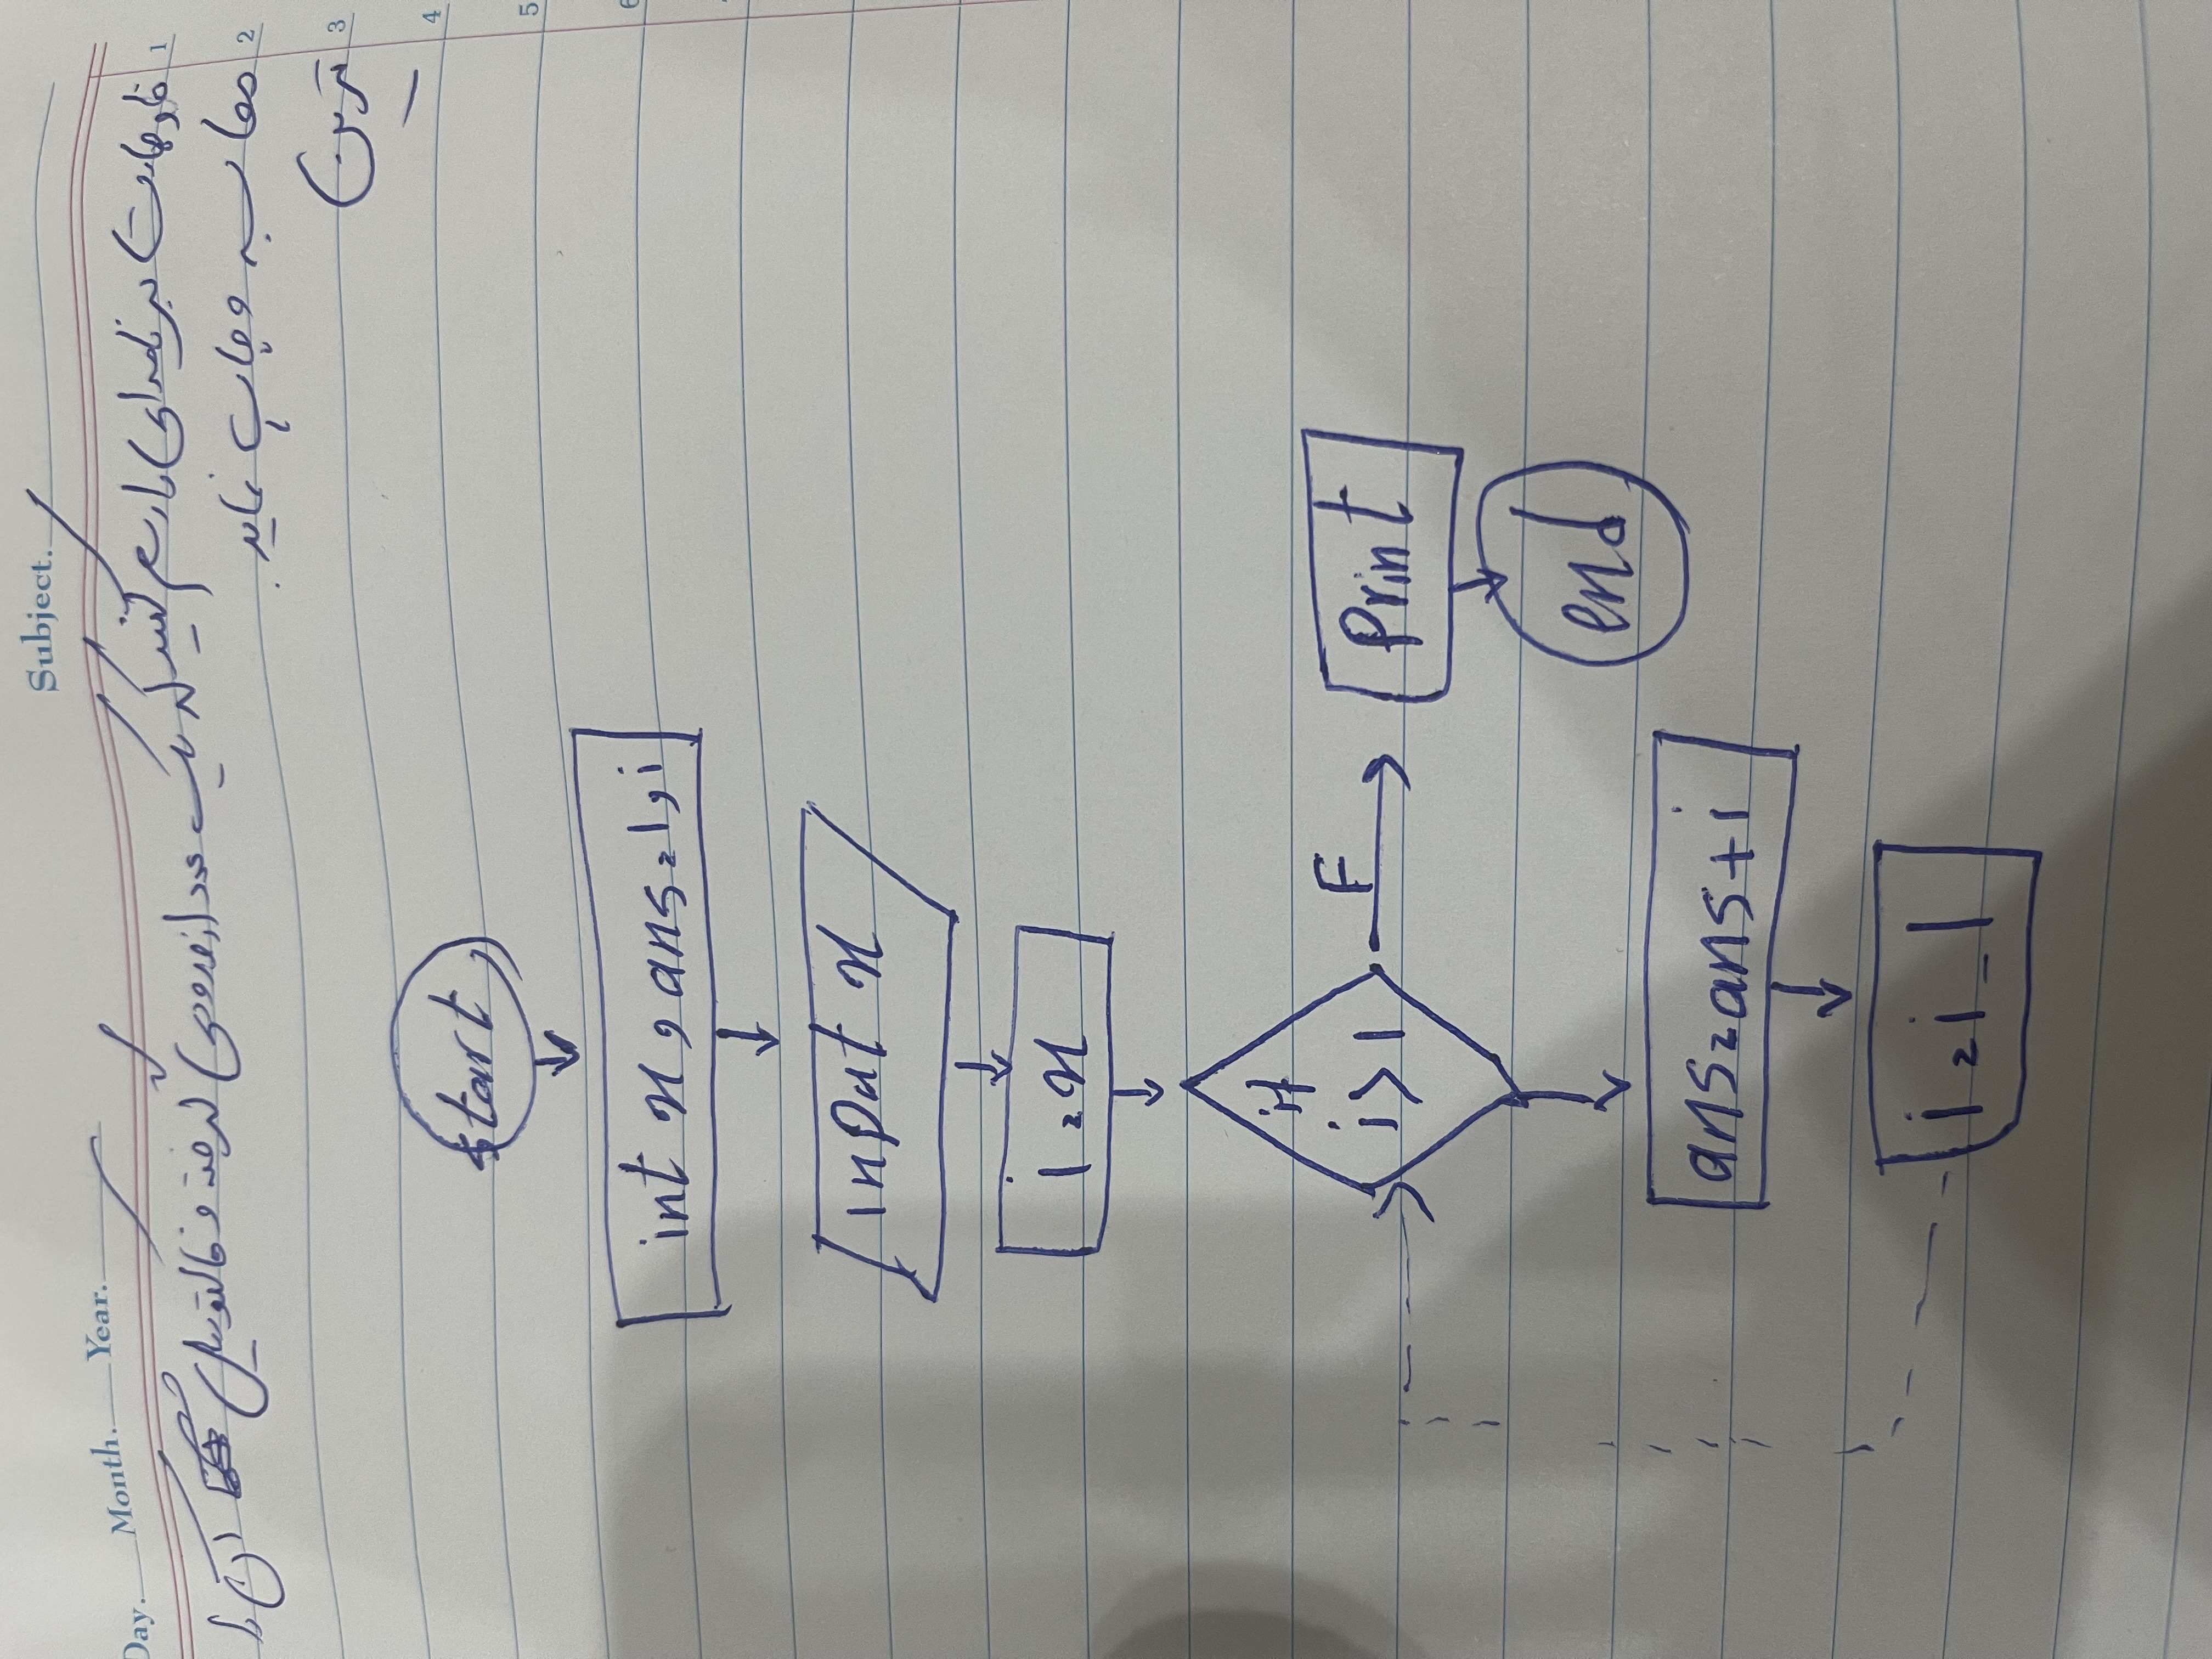 Subject.
Day. Month. Year.
فلوچارت برنامه‌ای را رسم کنید که یک عدد از ورودی گرفته و فاکتوریل آن را
1
محاسبه و چاپ نماید.
2
تمرین
3
4
start
5
int x, ans=1, i
6
input x
i=x
if
i>1
F
print
end
ans=ans+i
i=i-1